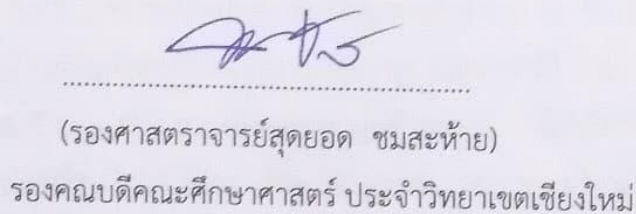 (รองศาสตราจารย์สุดยอด ชมสะห้าย)
รองคณบดีคณะศึกษาศาสตร์ ประจำวิทยาเขตเชียงใหม่